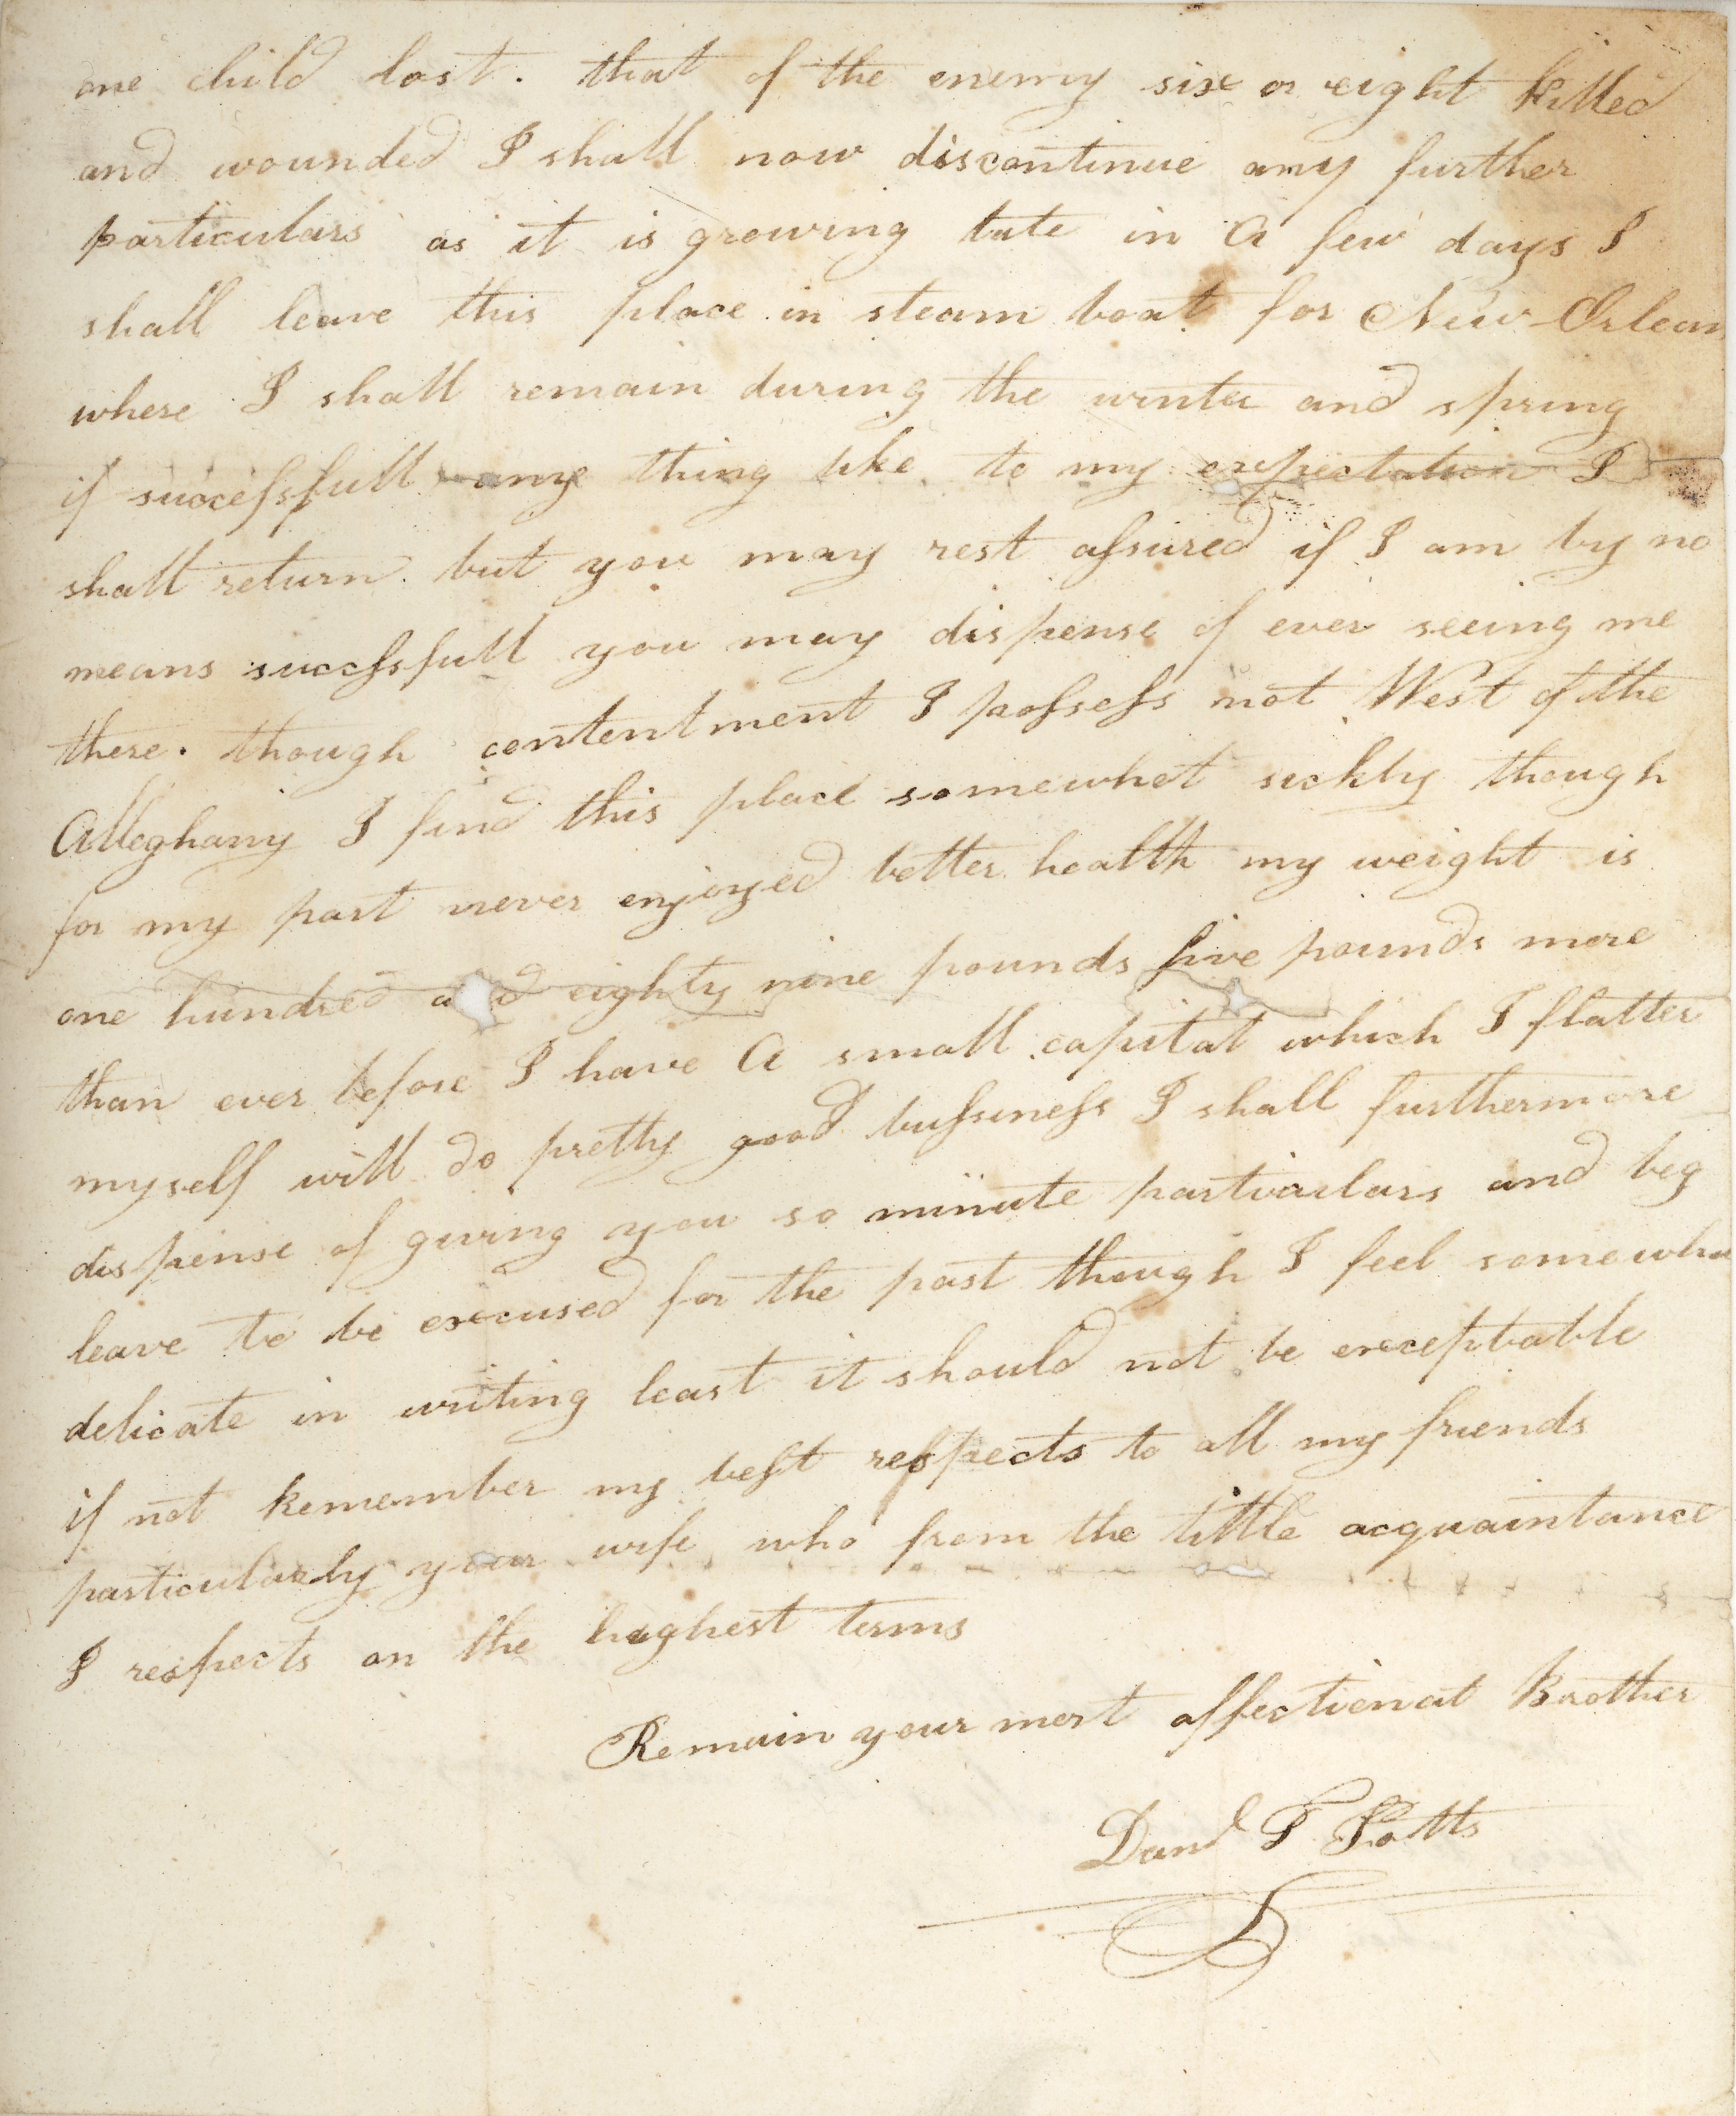 one child lost. that of the enemy six or eight killed
and wounded I shall now discontinue any further
particulars as it is growing late in A few days I
shall leave this place in steam boat for New Orlean
where I shall remain during the winter and spring
if successfull any thing like to my expectation I
shall return. but you may rest assured if I am by no
means succssfull you may dispense of ever seeing me
there. though contentment I possess not West of the
Alleghany I find this place somewhat sickly though
for my part never enjoyed better health my weight is
one hundred a d eighty nine pounds five pounds more
than ever before I have A small capital which I flatter
myself will do pretty good bussiness I shall furthermore
dispense of giving you so minute particulars and beg
leave to be excused for the past though I feel somewha
delicate in writing least it should not be exceptable
if not Remember my best respects to all my friends
particularly your wife who from the little acquaintance
I respects on the highest terms
Remain your most affectionat Brother
Danl T Potts